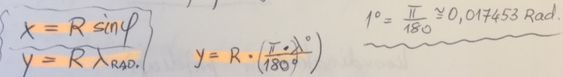 x = R sinφ
y = R λ RAD.
y = R · (π·λ° / 180°)
1° = π / 180 ≅ 0,017453 Rad.